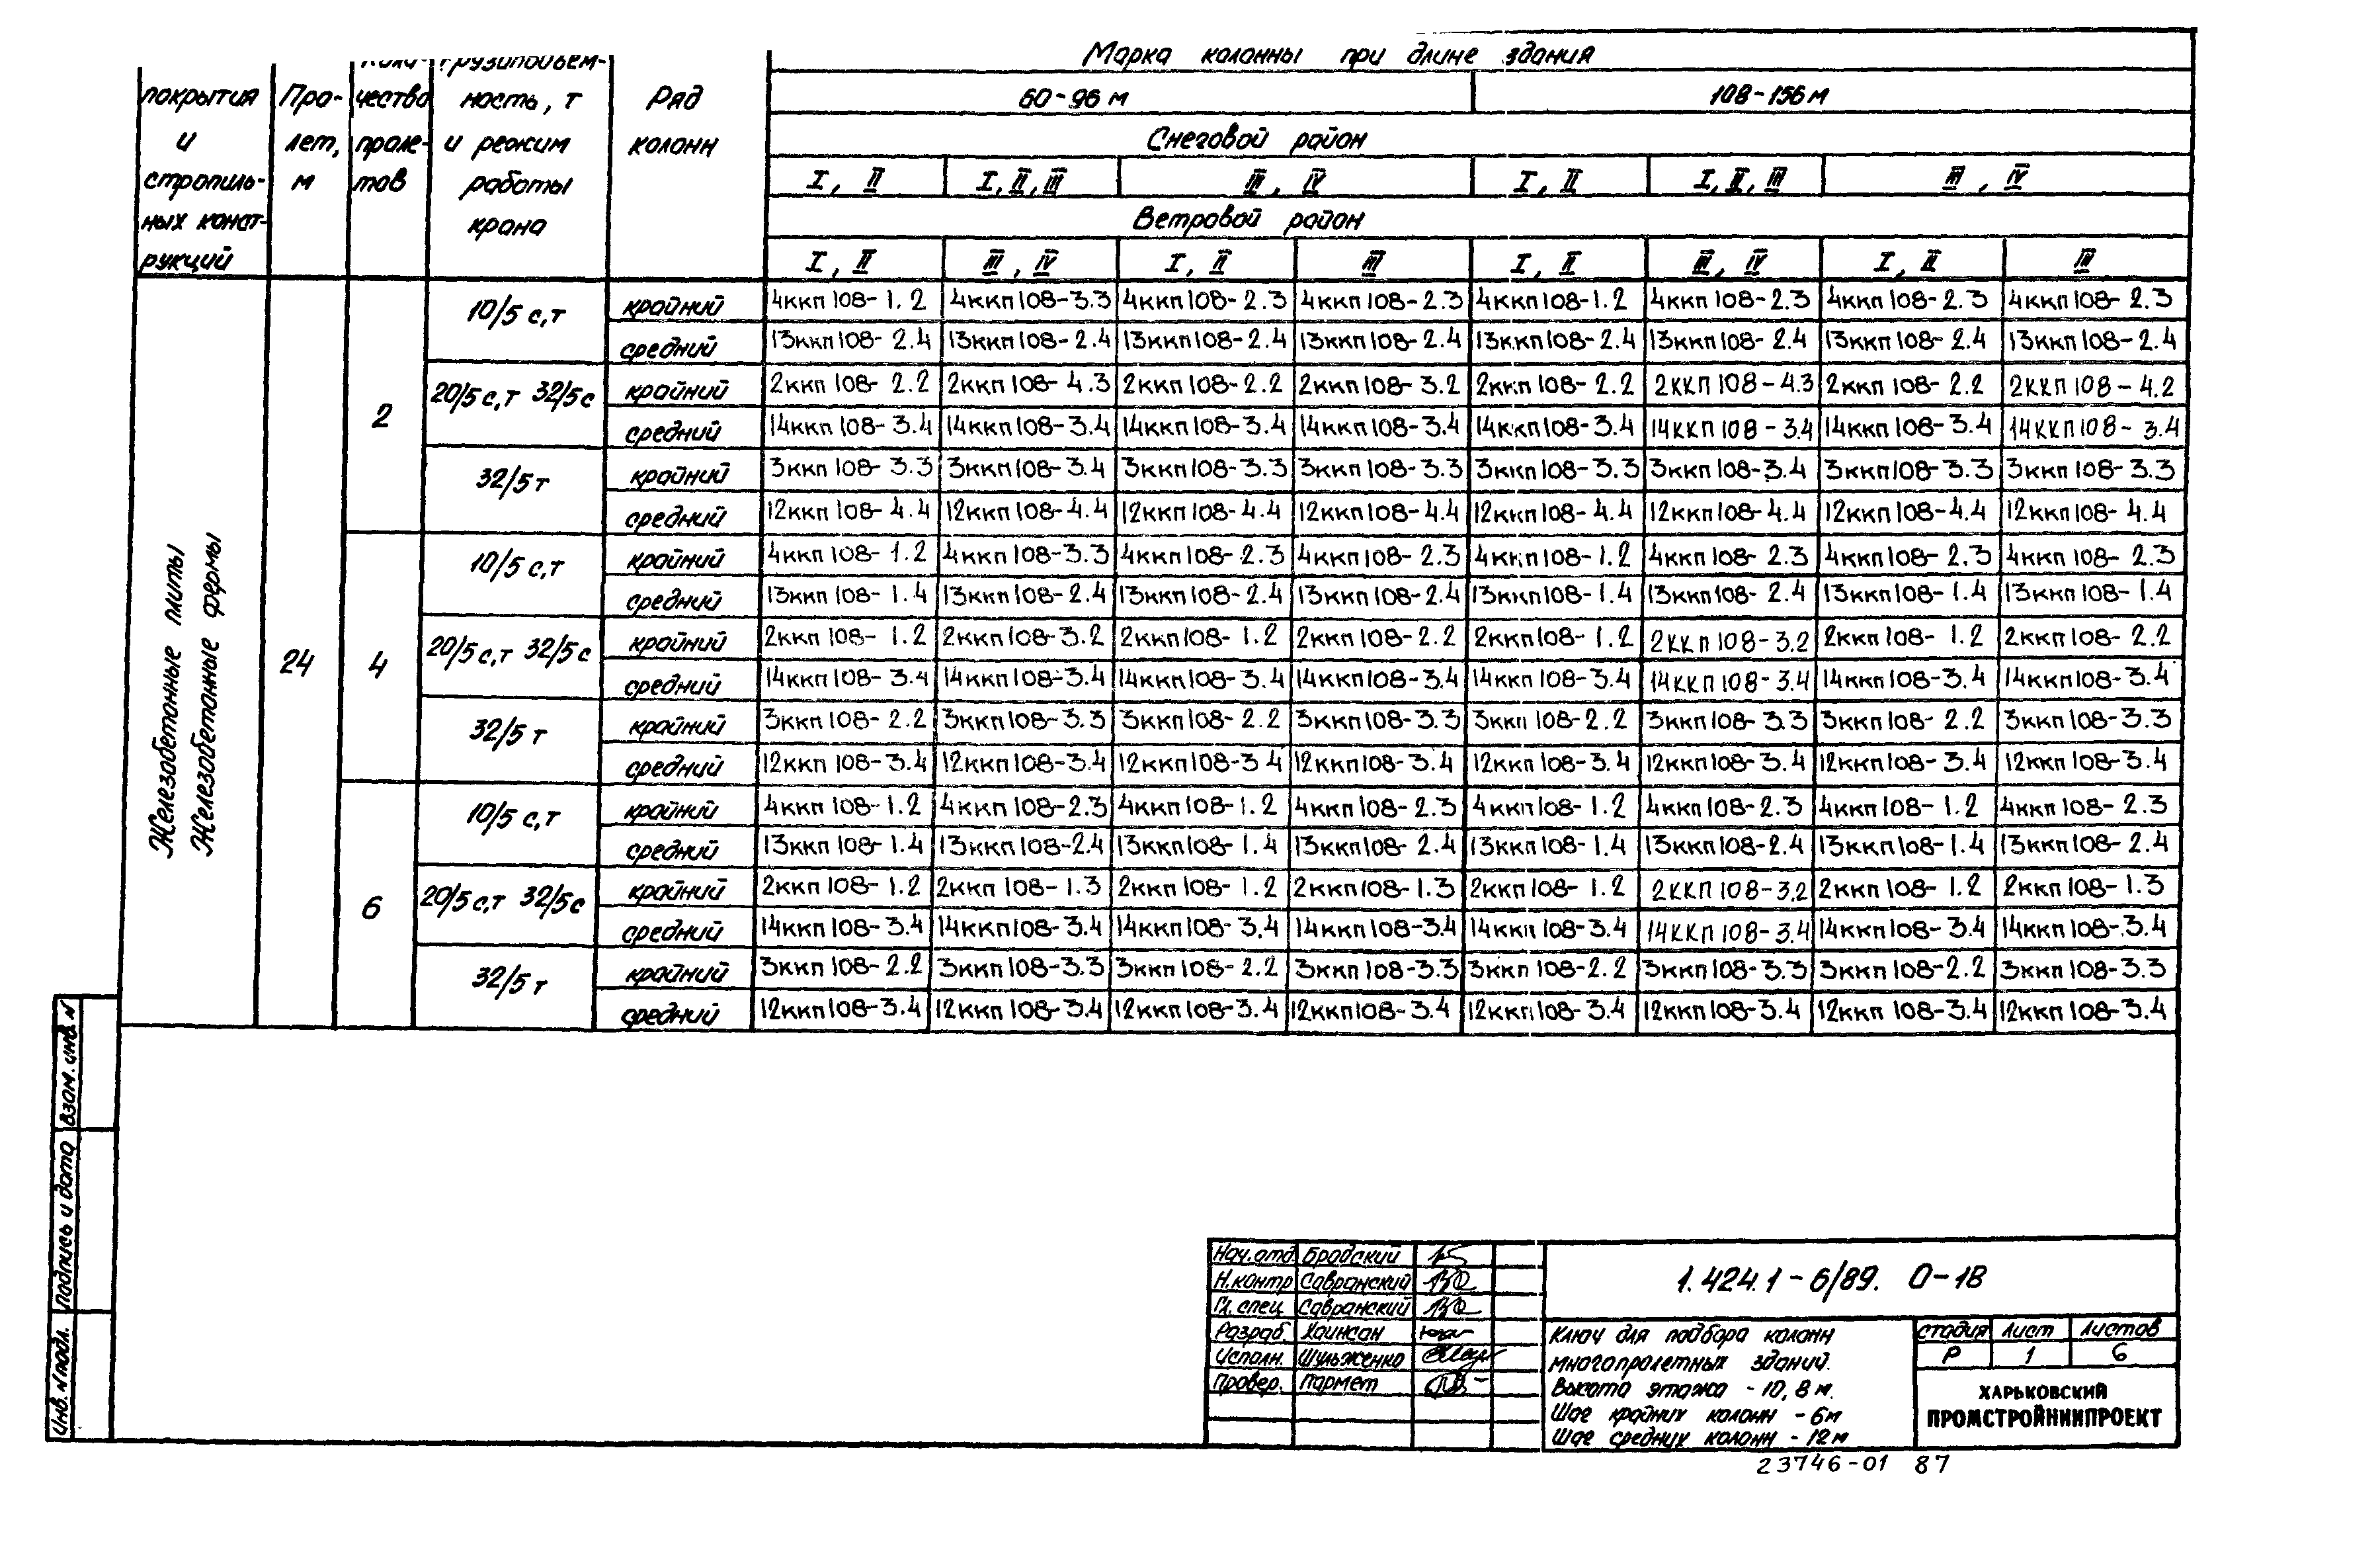 Марка колонны при длине здания
покрытия и стропиль- ных конст- рукций
Про- лет, м
Коли- чество проле- тов
Грузоподъем- ность, т и режим работы крана
Ряд колонн
60-96 м 108-156 м
Снеговой район
I, II I, II, III III, IV I, II I, II, III III, IV
Ветровой район
I, II III, IV I, II III I, II III, IV I, II IV
Железобетонные плиты
Железобетонные фермы
24
2
10/5 с,т
крайний 4ккп108-1.2 4ккп108-3.3 4ккп108-2.3 4ккп108-2.3 4ккп108-1.2 4ккп108-2.3 4ккп108-2.3 4ккп108-2.3
средний 13ккп108-2.4 13ккп108-2.4 13ккп108-2.4 13ккп108-2.4 13ккп108-2.4 13ккп108-2.4 13ккп108-2.4 13ккп108-2.4
20/5 с,т 32/5 с
крайний 2ккп108-2.2 2ккп108-4.3 2ккп108-2.2 2ккп108-3.2 2ккп108-2.2 2ККП108-4.3 2ккп108-2.2 2ККП108-4.2
средний 14ккп108-3.4 14ккп108-3.4 14ккп108-3.4 14ккп108-3.4 14ккп108-3.4 14ККП108-3.4 14ккп108-3.4 14ККП108-3.4
32/5 т
крайний 3ккп108-3.3 3ккп108-3.4 3ккп108-3.3 3ккп108-3.3 3ккп108-3.3 3ккп108-3.4 3ккп108-3.3 3ккп108-3.3
средний 12ккп108-4.4 12ккп108-4.4 12ккп108-4.4 12ккп108-4.4 12ккп108-4.4 12ккп108-4.4 12ккп108-4.4 12ккп108-4.4
4
10/5 с,т
крайний 4ккп108-1.2 4ккп108-3.3 4ккп108-2.3 4ккп108-2.3 4ккп108-1.2 4ккп108-2.3 4ккп108-2.3 4ккп108-2.3
средний 13ккп108-1.4 13ккп108-2.4 13ккп108-2.4 13ккп108-2.4 13ккп108-1.4 13ккп108-2.4 13ккп108-1.4 13ккп108-1.4
20/5 с,т 32/5 с
крайний 2ккп108-1.2 2ккп108-3.2 2ккп108-1.2 2ккп108-2.2 2ккп108-1.2 2ККП108-3.2 2ккп108-1.2 2ккп108-2.2
средний 14ккп108-3.4 14ккп108-3.4 14ккп108-3.4 14ккп108-3.4 14ккп108-3.4 14ККП108-3.4 14ккп108-3.4 14ккп108-3.4
32/5 т
крайний 3ккп108-2.2 3ккп108-3.3 3ккп108-2.2 3ккп108-3.3 3ккп108-2.2 3ккп108-3.3 3ккп108-2.2 3ккп108-3.3
средний 12ккп108-3.4 12ккп108-3.4 12ккп108-3 4 12ккп108-3.4 12ккп108-3.4 12ккп108-3.4 12ккп108-3.4 12ккп108-3.4
6
10/5 с,т
крайний 4ккп108-1.2 4ккп108-2.3 4ккп108-1.2 4ккп108-2.3 4ккп108-1.2 4ккп108-2.3 4ккп108-1.2 4ккп108-2.3
средний 13ккп108-1.4 13ккп108-2.4 13ккп108-1.4 13ккп108-2.4 13ккп108-1.4 13ккп108-2.4 13ккп108-1.4 13ккп108-2.4
20/5 с,т 32/5 с
крайний 2ккп108-1.2 2ккп108-1.3 2ккп108-1.2 2ккп108-1.3 2ккп108-1.2 2ККП108-3.2 2ккп108-1.2 2ккп108-1.3
средний 14ккп108-3.4 14ккп108-3.4 14ккп108-3.4 14ккп108-3.4 14ккп108-3.4 14ККП108-3.4 14ккп108-3.4 14ккп108-3.4
32/5 т
крайний 3ккп108-2.2 3ккп108-3.3 3ккп108-2.2 3ккп108-3.3 3ккп108-2.2 3ккп108-3.3 3ккп108-2.2 3ккп108-3.3
средний 12ккп108-3.4 12ккп108-3.4 12ккп108-3.4 12ккп108-3.4 12ккп108-3.4 12ккп108-3.4 12ккп108-3.4 12ккп108-3.4
Взам. инв. N
Подпись и дата
Инв. N подл.
Нач. отд. Бродский
Н.контр Савранский
Гл. спец Савранский
Разраб. Хаинсан
Исполн. Шульженко
Провер. Пармет
1.424.1-6/89. 0-1В
Ключ для подбора колонн
многопролетных зданий.
Высота этажа - 10,8 м.
Шаг крайних колонн - 6м
Шаг средних колонн - 12м
Стадия Лист Листов
Р 1 6
ХАРЬКОВСКИЙ
ПРОМСТРОЙНИИПРОЕКТ
23746-01 87